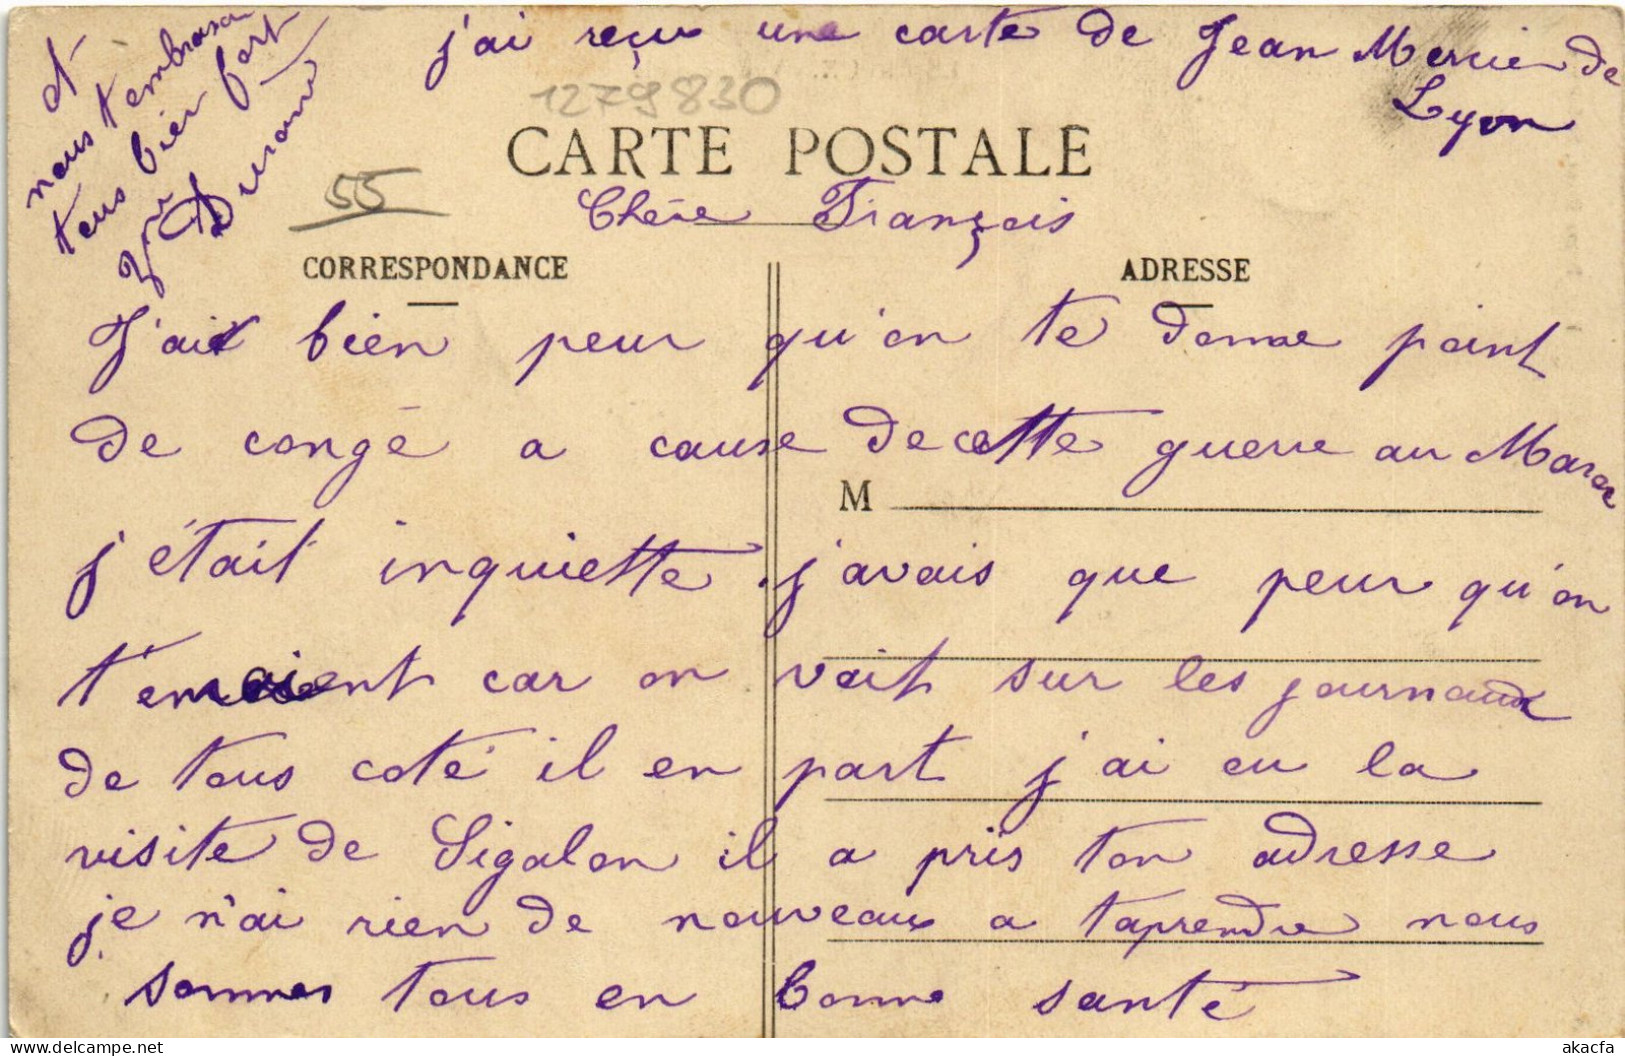 j'ai reçu une carte de Jean Mercier de
Lyon
1279830
CARTE POSTALE
55
Chère François
CORRESPONDANCE
ADRESSE
J'ait bien peur qu'on te donne point
de congé a cause de cette guerre au Maroc
M
j'était inquiette. j'avais que peur qu'on
t'envoient car on voit sur les journaux
de tous coté il en part j'ai eu la
visite de Sigalon il a pris ton adresse
je n'ai rien de nouveaux a taprendre nous
sommes tous en bonne santé
et
nous t'embrason
tous bien fort
Durand
akacfa
delcampe.net